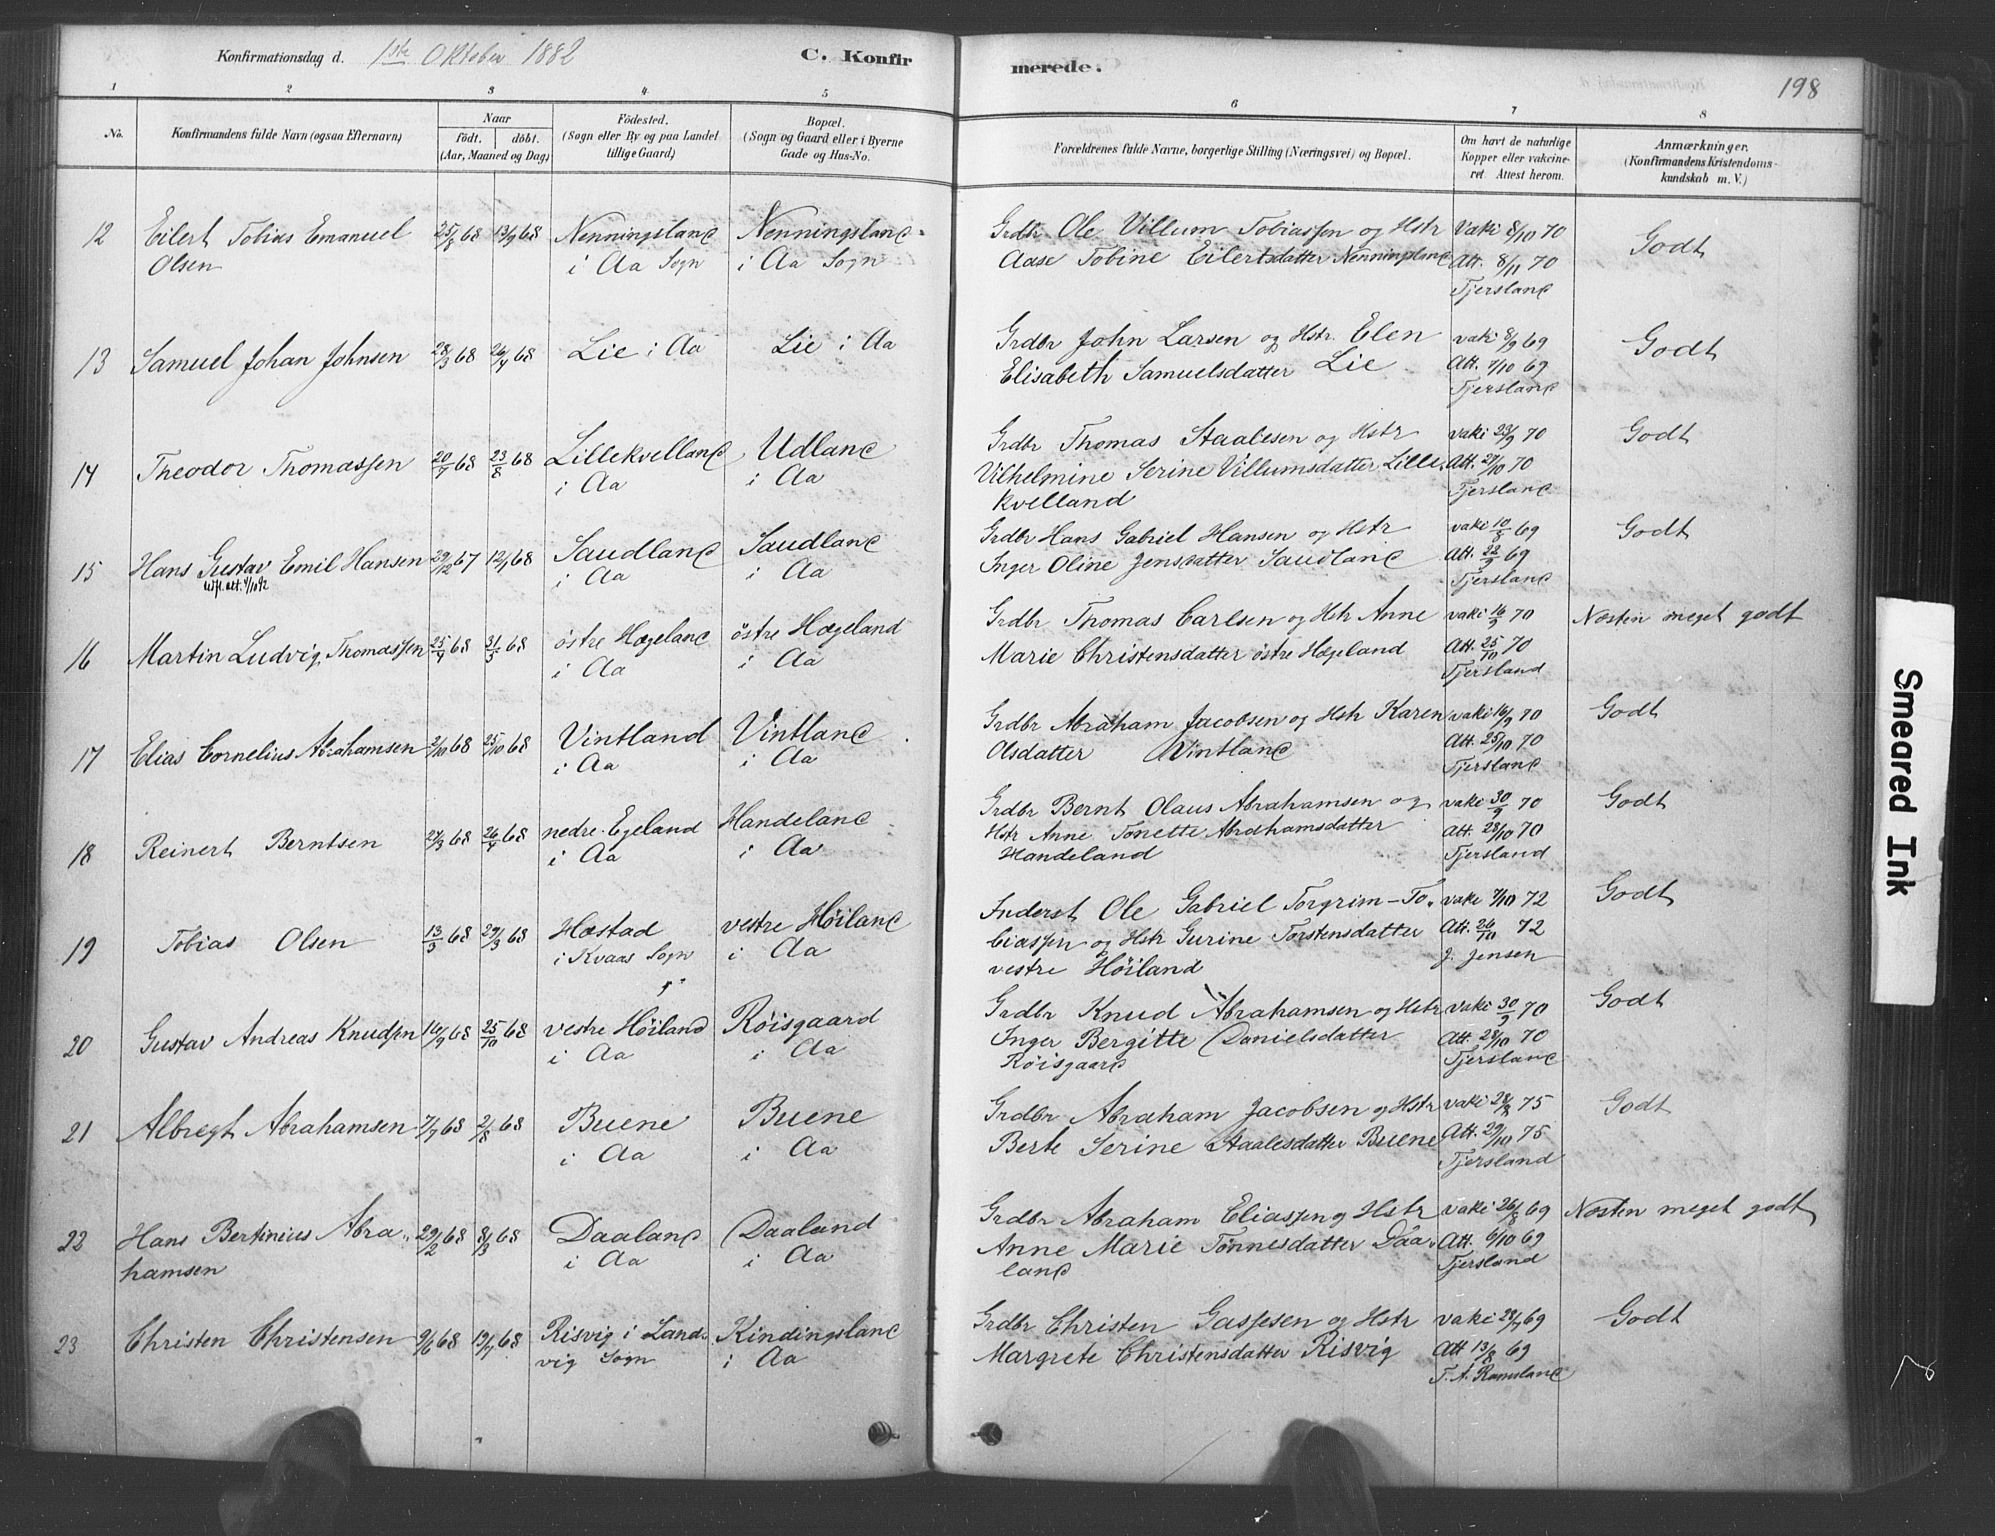 Konfirmationsdag d. 1ste Oktober 1882
C. Konfirmerede.
198
1 2 3 4 5 6 7 8
No.
Konfirmandens fulde Navn (ogsaa Efternavn)
Naar
født. døbt.
(Aar, Maaned og Dag)
Fødested.
(Sogn eller By og paa Landet
tillige Gaard)
Bopæl.
(Sogn og Gaard eller i Byerne
Gade og Hus-No.
Forældrenes fulde Navne, borgerlige Stilling (Næringsvei) og Bopæl.
Om havt de naturlige
Kopper eller vakcine-
ret Attest herom.
Anmærkninger.
(Konfirmandens Kristendoms-
kundskab m. V.)
12 Eilert Tobias Emanuel 25/8 68 13/9 68 Nenningsland Nenningsland Grdbr Ole Villum Tobiassen og Hstr Vaki 8/10 70 Godt
Olsen i Aa Sogn i Aa Sogn Aase Tobine Eilertsdatter Nenningsland Att. 8/11 70
Tjersland
13 Samuel Johan Johnsen 28/3 68 26/4 68 Lie i Aa Lie i Aa Grdbr John Larsen og Hstr. Elen vaki 8/9 69 Godt
Elisabeth Samuelsdatter Lie Att. 7/10 69
Tjersland
14 Theodor Thomassen 20/7 68 23/8 68 Lillekvelland Udland Grdbr Thomas Staalesen og Hstr vaki 23/9 70 Godt
i Aa i Aa Vilhelmine Serine Villumsdatter Lille Att. 27/10 70
kvelland Tjersland
15 Hans Gustav Emil Hansen 29/12 67 12/1 68 Saudland Saudland Grdbr Hans Gabriel Hansen og Hstr vaki 10/8 69 Godt
i Aa i Aa Inger Oline Jensdatter Saudland Att. 22/9 69
Tjersland
16 Martin Ludvig Thomassen 25/4 68 31/5 68 östre Hægeland östre Hægeland Grdbr Thomas Carlsen og Hstr Anne vaki 16/9 70 Næsten meget godt
i Aa i Aa Marie Christensdatter östre Hægeland Att. 25/10 70
Tjersland
17 Elias Cornelius Abrahamsen 2/10 68 25/10 68 Vintland Vintland Grdbr Abraham Jacobsen og Hstr Karen vaki 16/9 70 Godt
i Aa i Aa Olsdatter Vintland Att. 25/10 70
Tjersland
18 Reinert Berntsen 27/3 68 26/4 68 nedre Egeland Handeland Grdbr Bernt Olaus Abrahamsen og vaki 30/9 70 Godt
i Aa i Aa Hstr Anne Tonette Abrahamsdatter Att. 28/10 70
Handeland Tjersland
19 Tobias Olsen 13/3 68 29/3 68 Hæstad vestre Höiland Inderst Ole Gabriel Torgrim-To- vaki 7/10 72 Godt
i Kvaas Sogn i Aa biassen og Hstr Gurine Torstensdatter Att. 26/10 72
vestre Höiland J. Jensen
20 Gustav Andreas Knudsen 16/9 68 25/10 68 vestre Höiland Röisgaard Grdbr Knud Abrahamsen og Hstr vaki 30/9 70 Godt
i Aa i Aa Inger Bergitte Danielsdatter Att. 28/10 70
Röisgaard Tjersland
21 Albregt Abrahamsen 7/7 68 2/8 68 Buene Buene Grdbr Abraham Jacobsen og Hstr vaki 28/8 75 Godt
i Aa i Aa Berte Serine Staalesdatter Buene Att. 29/10 75
Tjersland
22 Hans Bertinius Abra- 29/2 68 8/3 68 Daaland Daaland Grdbr Abraham Eliassen og Hstr vaki 26/8 69 Næsten meget godt
hamsen i Aa i Aa Anne Marie Tönnesdatter Daa- Att. 6/10 69
land Tjersland
23 Christen Christensen 9/6 68 19/7 68 Risvig i Land- Kindingsland Grdbr Christen Gassesen og Hstr vaki 28/7 69 Godt
vig Sogn i Aa Margrete Christensdatter Risvig Att 13/8 69
T. A. Ramsland
Smeared Ink